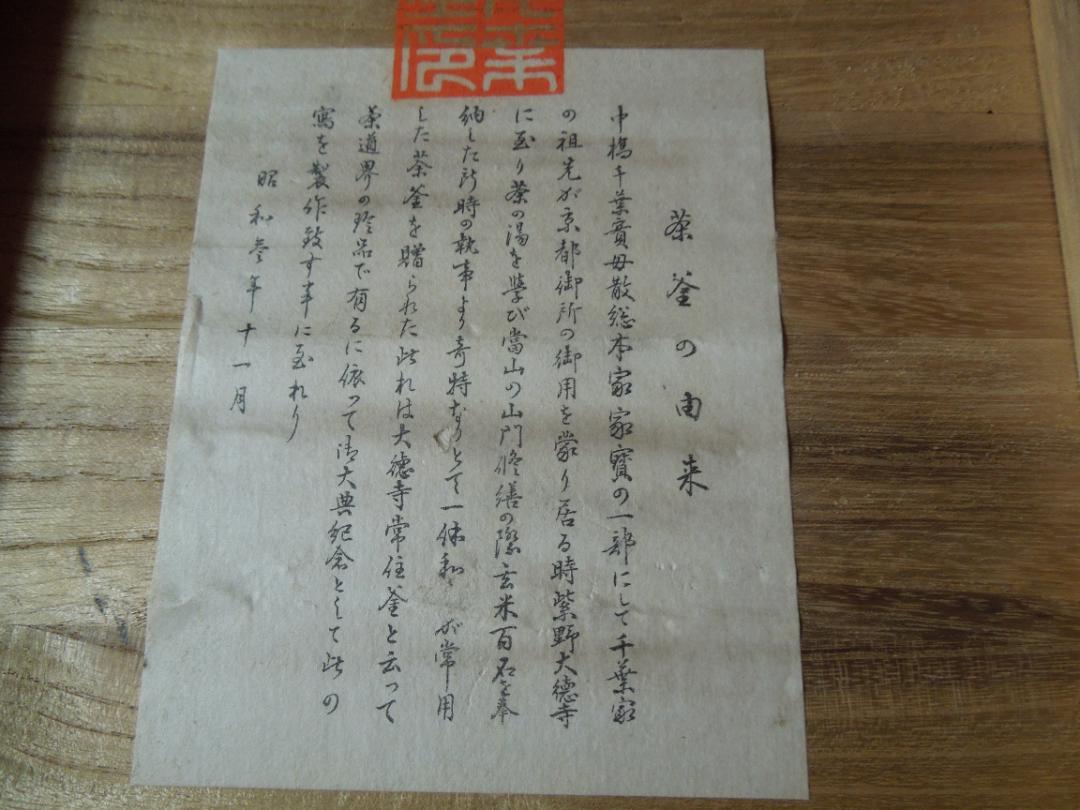 茶釜の由来
中橋千葉實母散総本家家寶の一部にして千葉家
の祖先が京都御所の御用を蒙り居る時紫野大徳寺
に至り茶の湯を學び當山の山門修繕の際玄米百石を奉
納した所時の執事より奇特なりとて一休和 が常用
した茶釜を贈られた此れは大徳寺常住釜と云って
茶道界の珍品で有るに依って御大典紀念として此の
寫を製作致す事に至れり
昭和参年十一月